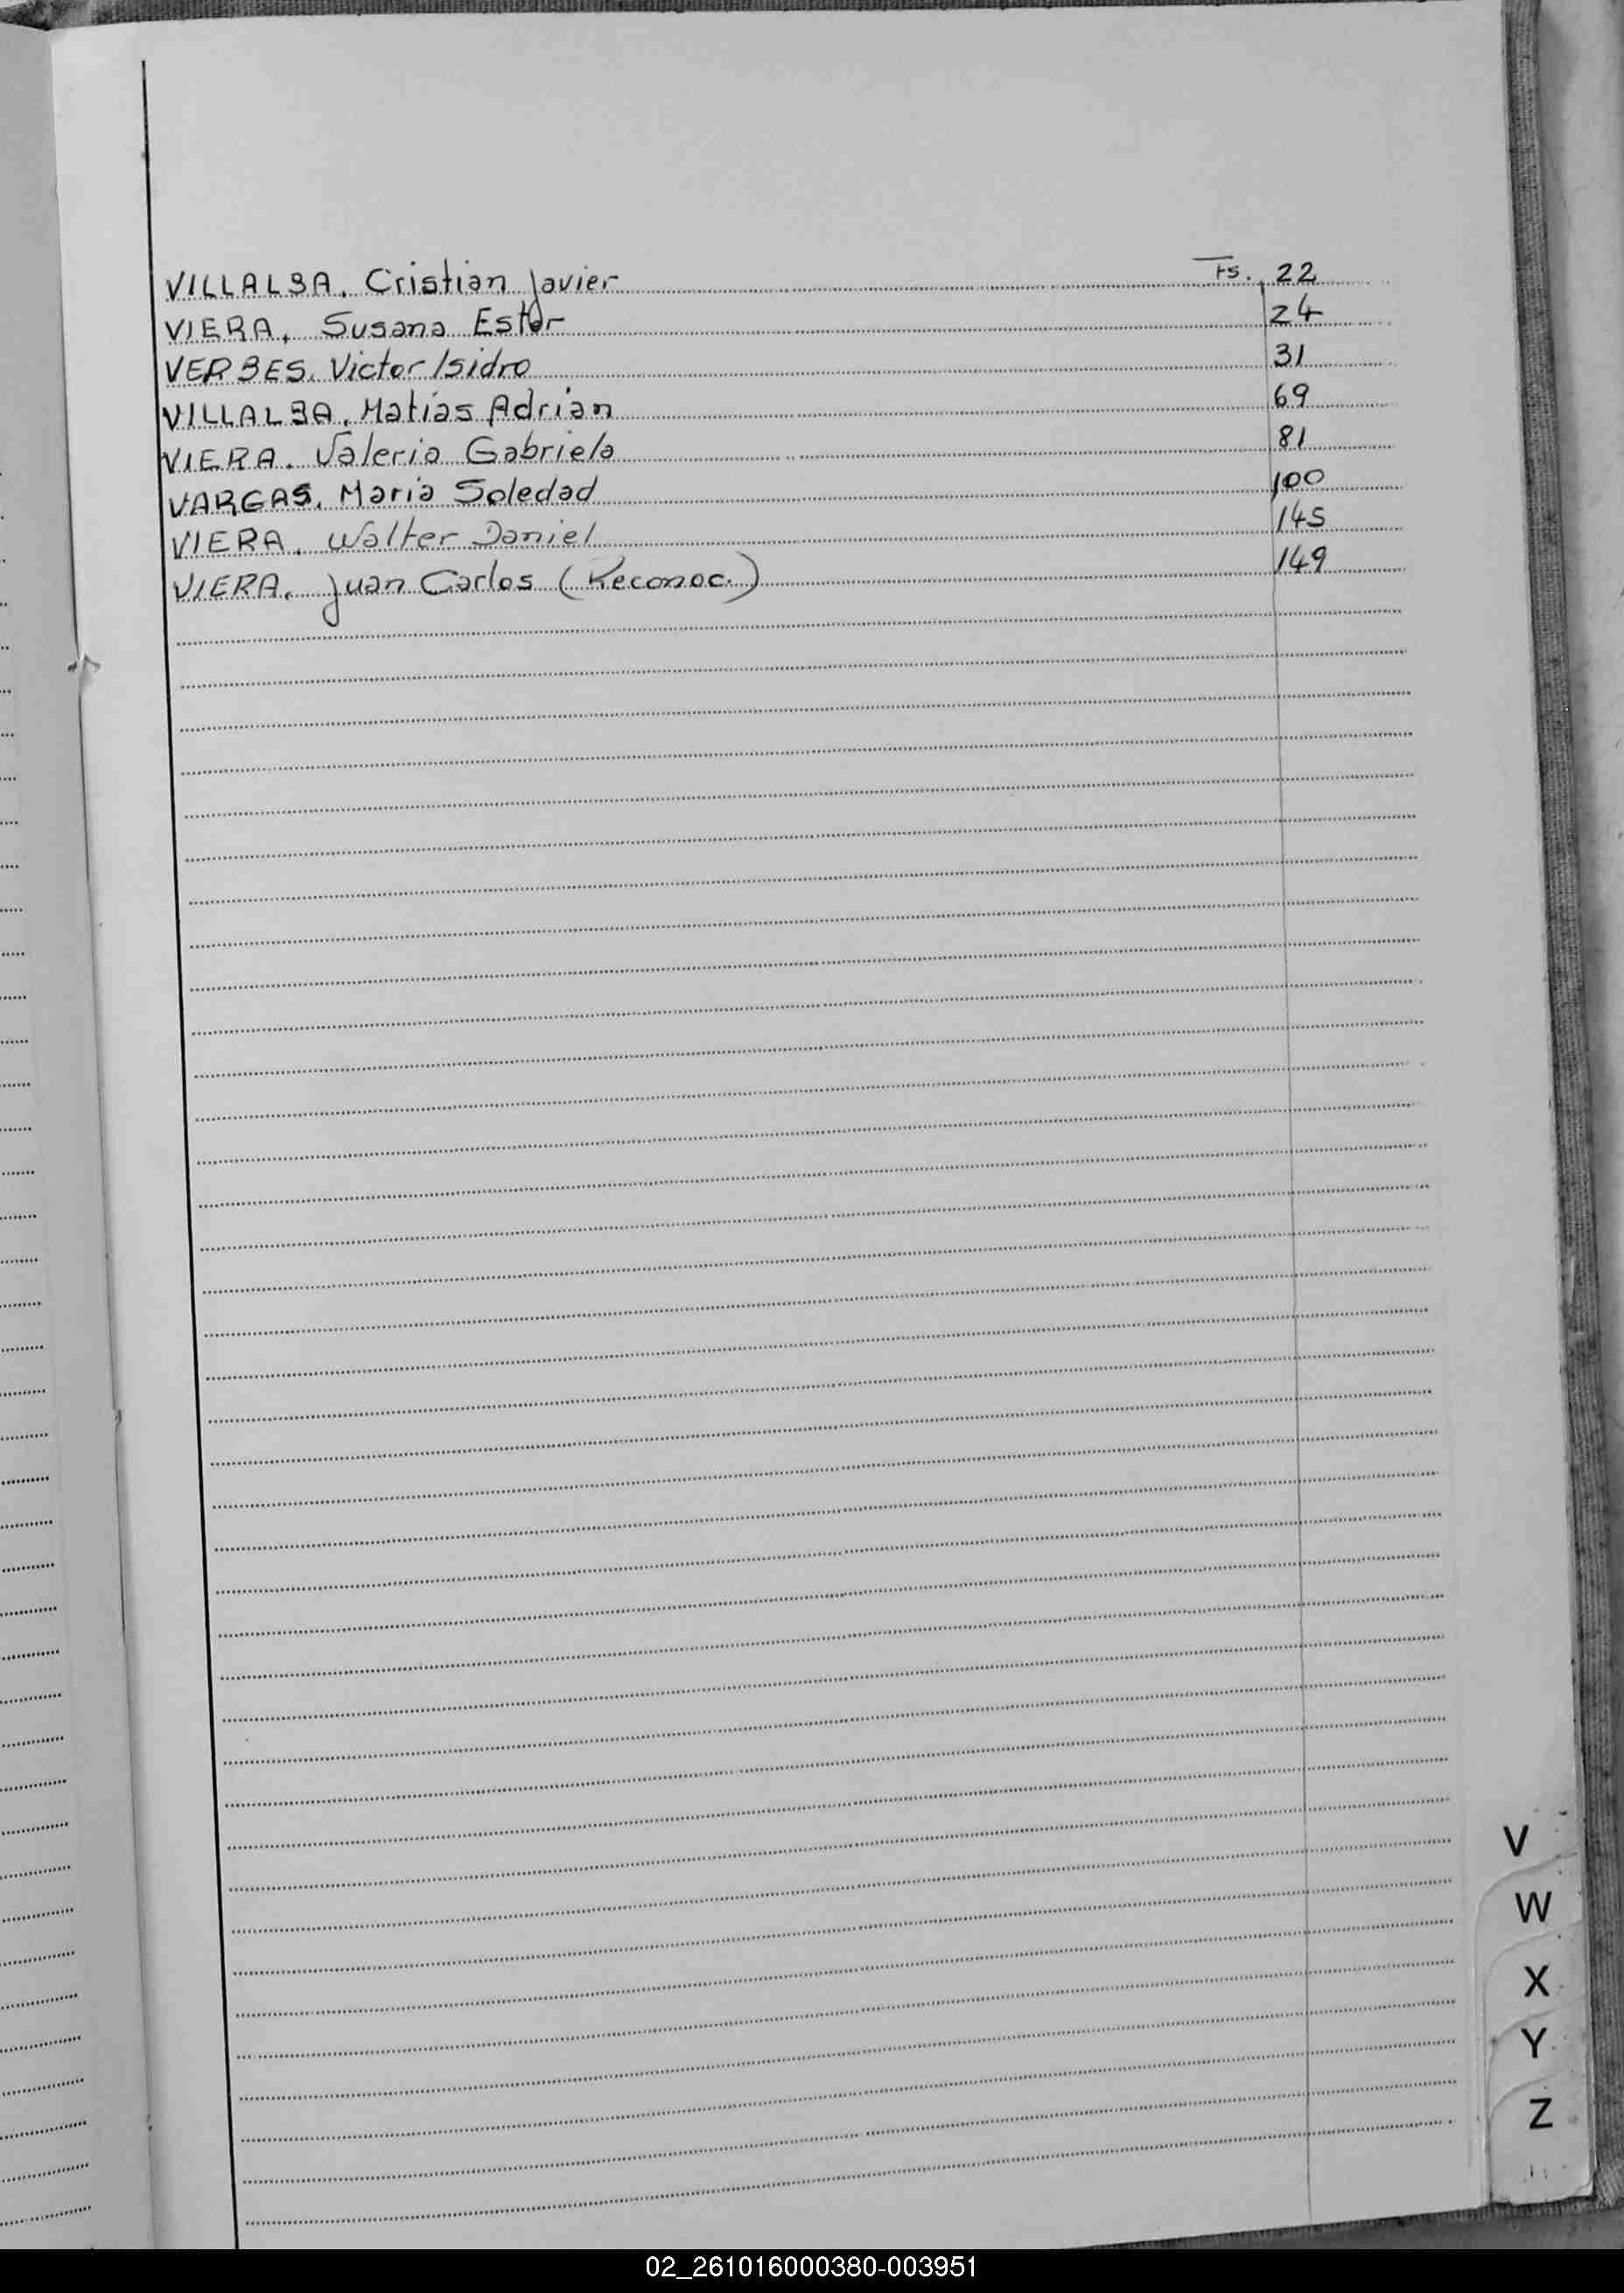 VILLALBA, Cristian Javier Fs. 22
VIERA, Susana Ester 24
VERBES, Victor Isidro 31
VILLALBA, Matías Adrián 69
VIERA, Valeria Gabriela 81
VARGAS, María Soledad 100
VIERA, Walter Daniel 145
VIERA, Juan Carlos (Reconoc.) 149
V
W
X
Y
Z
02_261016000380-003951